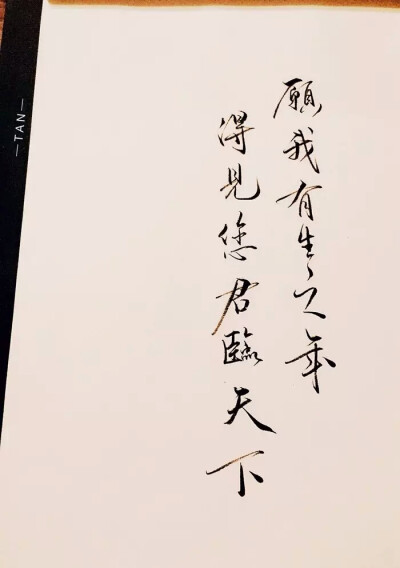 願我有生之年
得見您君臨天下
—TAN—